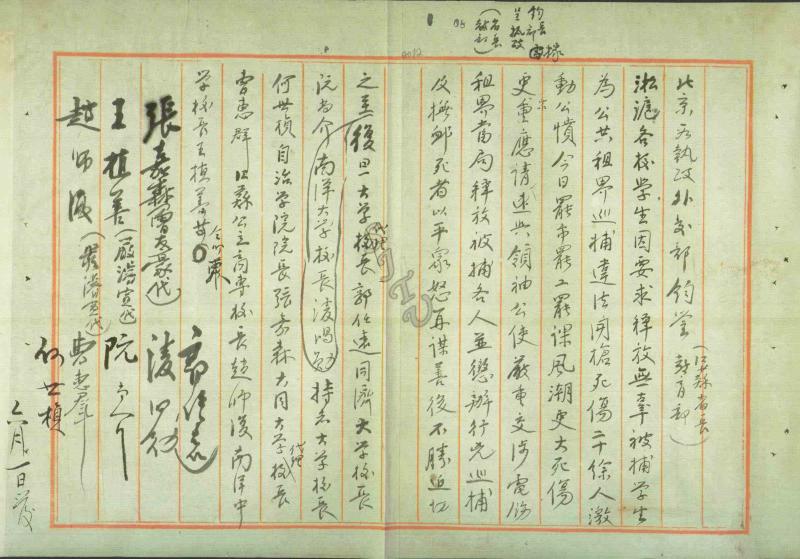 北京 執政外交部鈞鉴
(江蘇省長 教育部)
淞滬各校學生因要求釋放無辜被捕学生
為公共租界巡捕違法開槍死傷二十餘人激
動公憤今日罷市罷工罷課風潮更大死傷
更重應請速與領袖公使嚴重交涉電飭
租界當局釋放被捕各人並懲辦行兇巡捕
及撫卹死者以平眾怒再謀善後不勝迫切
之至復旦大学校長代理郭任遠同濟大学校長
阮尚介南洋大学校長凌鴻勛持志大学校長
何世楨自治学院院長張嘉森大同大学校長代理
曹惠群江蘇公立商專校長趙師復南洋中
学校長王植善
郭任遠
張嘉森
凌鴻勛
王植善
阮
趙師復
曹惠群
何世楨
六月一日